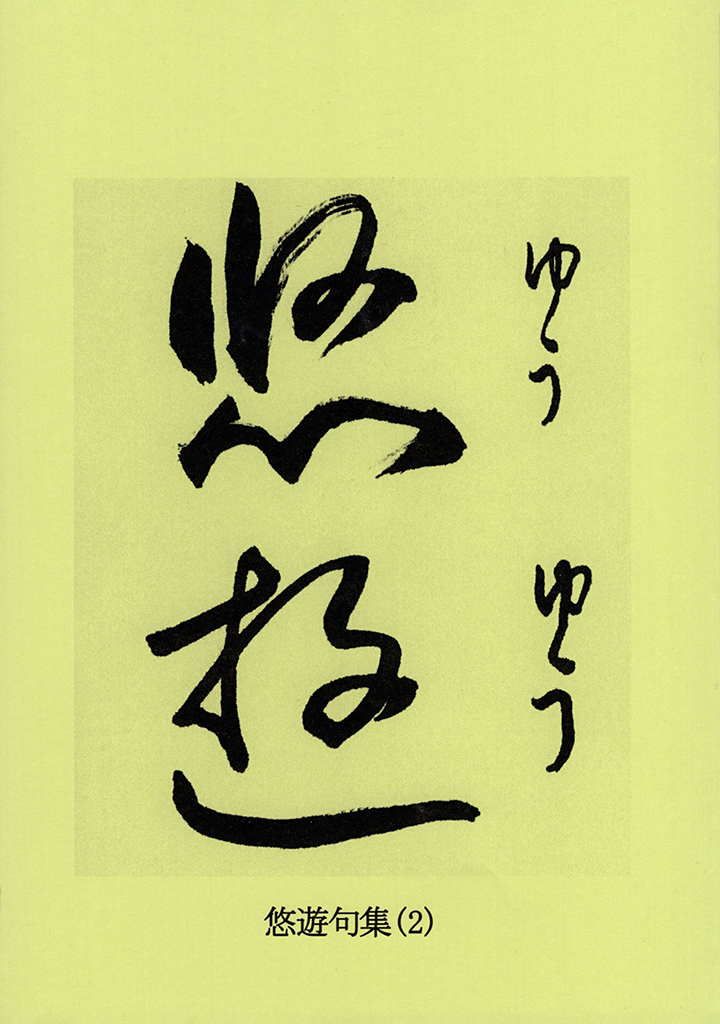 ゆう
ゆう
悠
遊
悠遊句集(2)